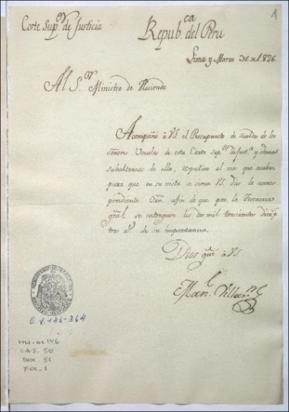 1
Corte Sup.or de Justicia
Repub.ca del Peru
Lima y Marzo 31 de 1826.
Al S.or Ministro de Hacienda
Acompaño á VS. el Presupuesto de sueldos de los
Señores Vocales de esta Corte Sup.or de Just.a y demas
subalternos de ella, respectivo al mes que acaba
para que en su vista se sirva VS. dar la correspondiente
Orn. afin de que por la Tesoreria
gral. se entreguen los dos mil trescientos
tres p.s de su importancia.
Dios gue. á VS.
Man.l
E.V. 146-364
O.L. 146
CAJ. 50
DOC. 51
FOL. 1